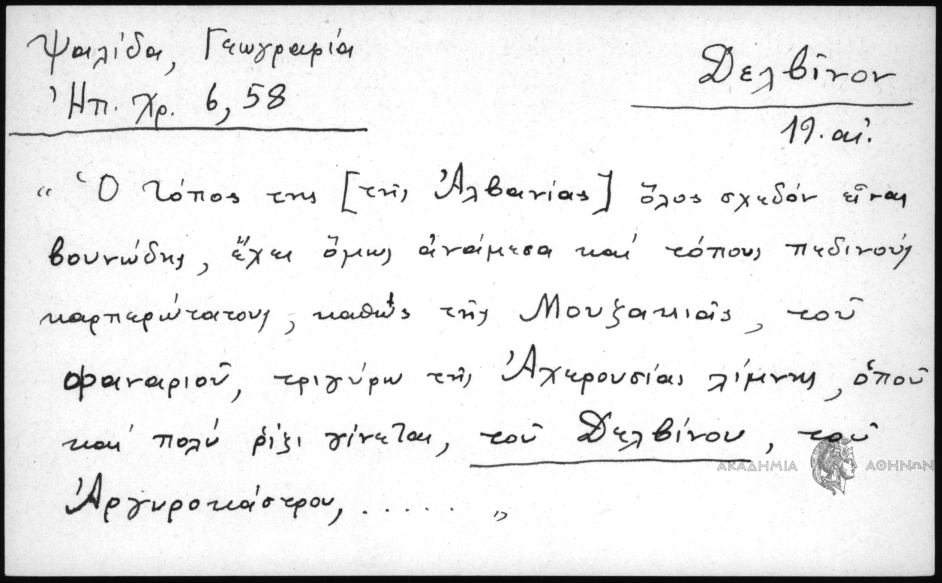 Ψαλίδα, Γεωγραφία
Ἠπ. Χρ. 6, 58
Δελβῖνον
19. αἰ.
“ Ὁ τόπος της [τῆς Ἀλβανίας] ὅλος σχεδόν εἶναι
βουνώδης, ἔχει ὅμως ἀνάμεσα καί τόπους πεδινούς
καρπερώτατους, καθὼς τῆς Μουζακιᾶς, τοῦ
Φαναριοῦ, τριγύρω τῆς Ἀχερουσίας λίμνης, ὁποῦ
καί πολύ ῥίζι γίνεται, τοῦ Δελβίνου, τοῦ
Ἀργυροκάστρου, ...... ”
ΑΚΑΔΗΜΙΑ ΑΘΗΝΩΝ